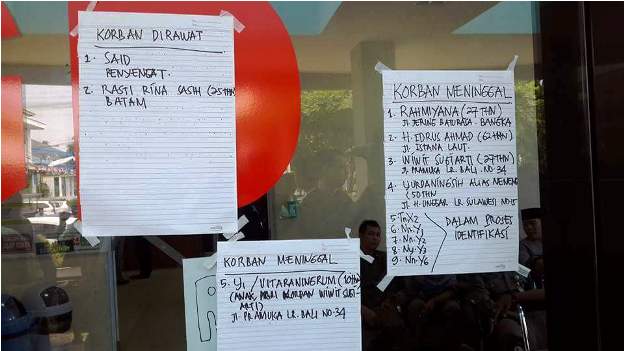 KORBAN DIRAWAT
1. SAID
PENYENGAT.
2. RASTI RINA SASIH (25 THN)
BATAM
KORBAN MENINGGAL
1. RAHMIYANA (27 THN)
Jl. JERING BATURAJA. BANGKA
2. H. IDRUS AHMAD (62 THN)
Jl. ISTANA LAUT.
3. WIWIT SUGIARTI (27 THN)
Jl. PRAMUKA LR. BALI. NO. 34
4. YURDANINGSIH ALIAS
(50 THN
Jl. H. UNGGAR LR. SULAWESI
5. Tn X2
6. Nn. Y1
7. Nn. Y2
8. Ny. Y3
9. Nn. Y6
DALAM PROSES
IDENTIFIKASI
KORBAN MENINGGAL
5. Y1 / VITARANINGRUM (10 THN)
(ANAK DARI KORBAN WIWIT SUGI-
ARTI)
Jl. PRAMUKA LR. BALI NO. 34